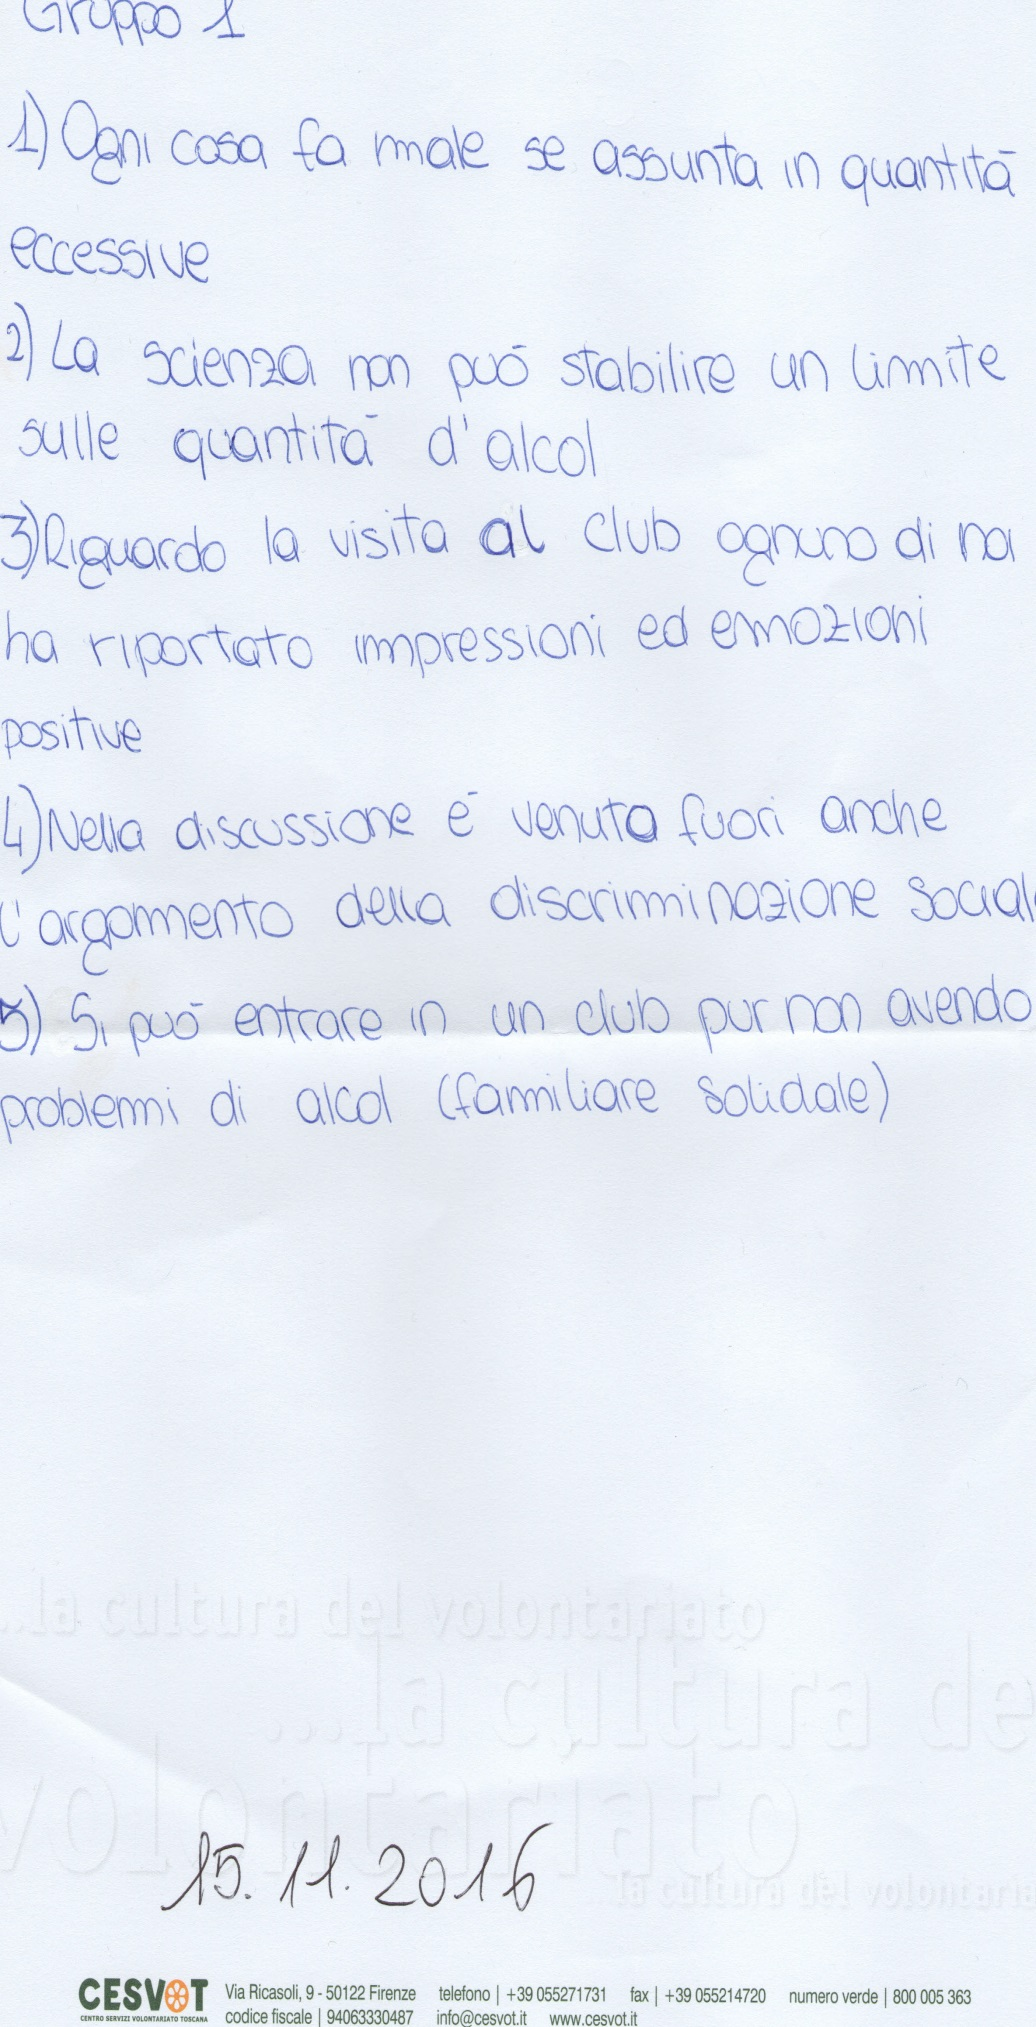 Gruppo 1
1) Ogni cosa fa male se assunta in quantità
eccessive
2) La scienza non può stabilire un limite
sulle quantità d'alcol
3) Riguardo la visita al club ognuno di noi
ha riportato impressioni ed emozioni
positive
4) Nella discussione è venuto fuori anche
l'argomento della discriminazione sociale
5) Si può entrare in un club pur non avendo
problemi di alcol (familiare solidale)
...la cultura del volontariato
...la cultura de
volontariato
15.11.2016
la cultura del volontaria
CESVOT Via Ricasoli, 9 - 50122 Firenze telefono | +39 055271731 fax | +39 055214720 numero verde | 800 005 363
CENTRO SERVIZI VOLONTARIATO TOSCANA codice fiscale | 94063330487 info@cesvot.it www.cesvot.it